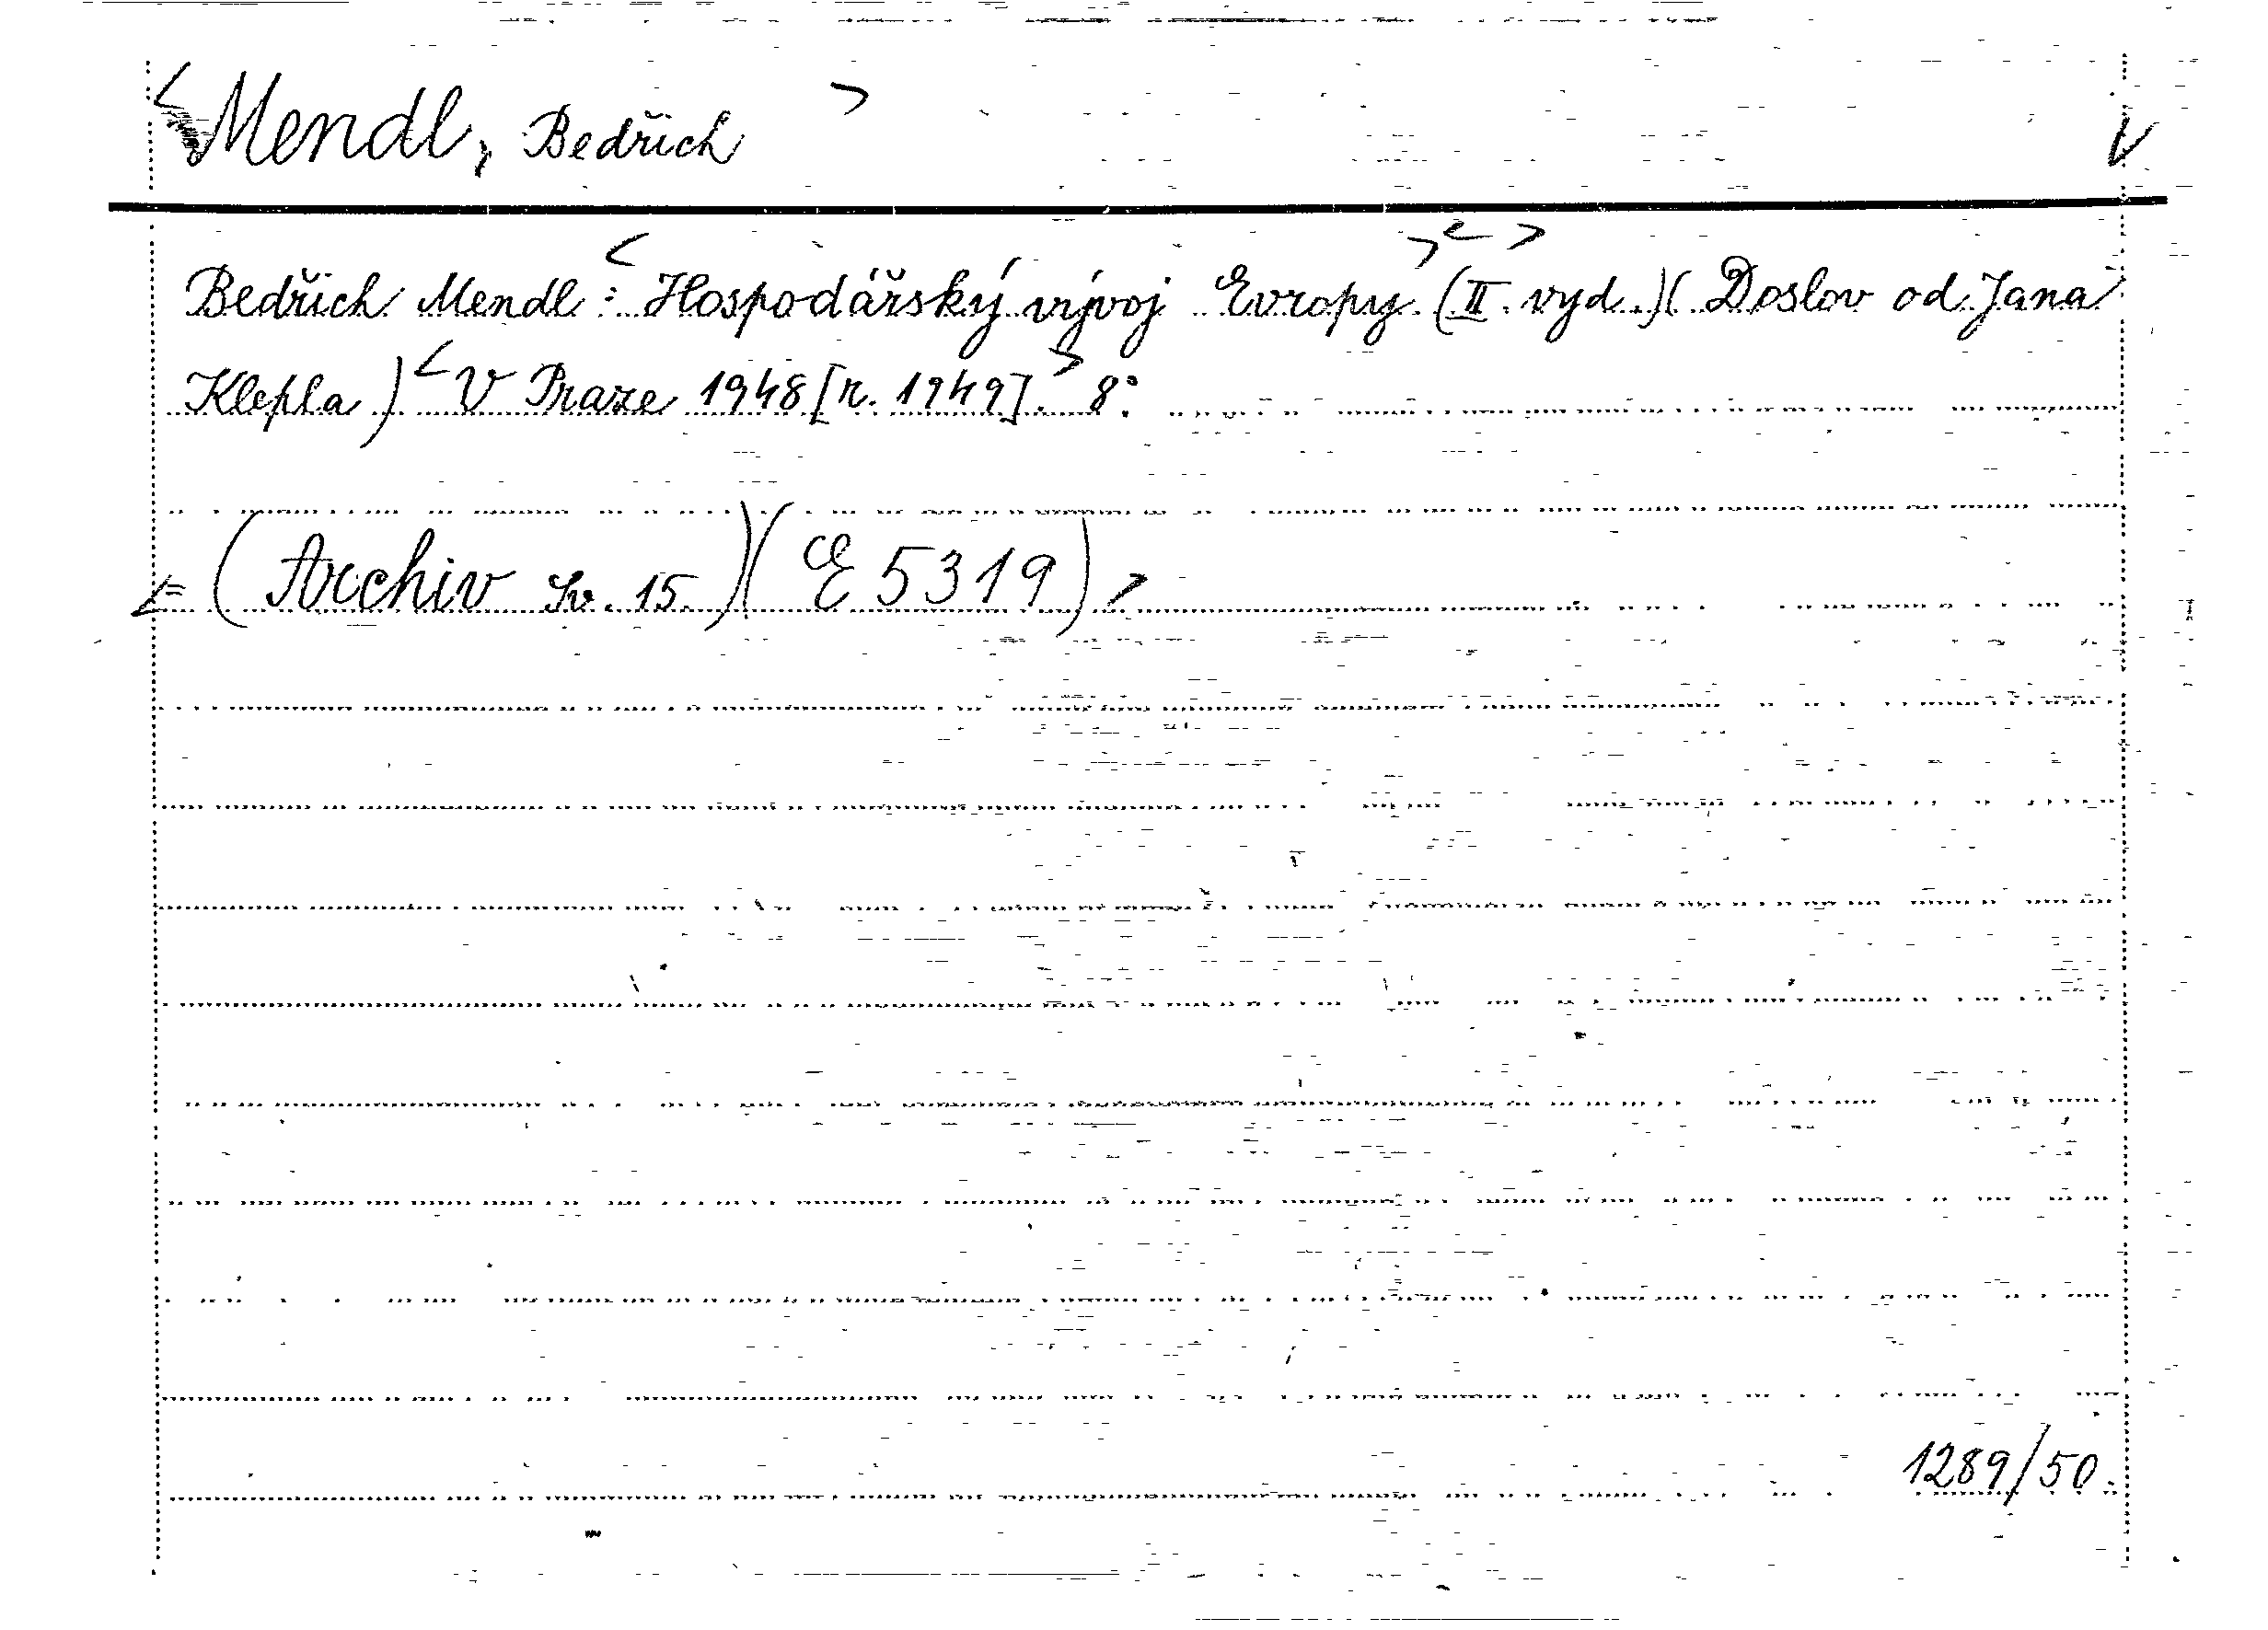 <Mendl, Bedřich> V
Bedřich Mendl: <Hospodářský vývoj Evropy> (<II. vyd.>)(Doslov od Jana
Klepla) <V Praze 1948 [r. 1949].> 8°.
<= (Archiv Sv. 15.)(E 5319)>
1289/50.